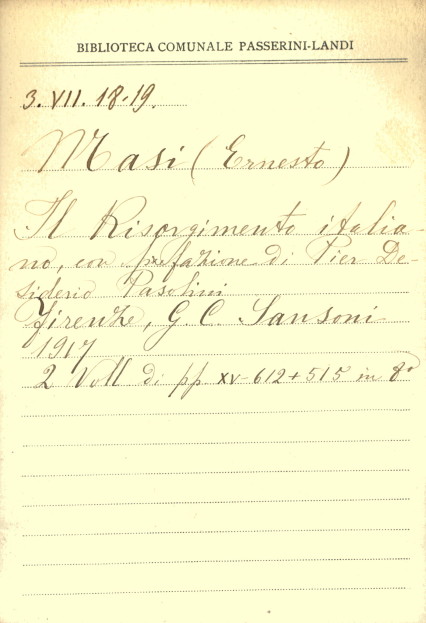 BIBLIOTECA COMUNALE PASSERINI-LANDI
3. VII. 18-19.
Masi (Ernesto)
Il Risorgimento italia-
no, con prefazione di Pier De-
siderio Pasolini
Firenze, G. C. Sansoni
1917
2 Voll di pp XV-612+515 in 8°